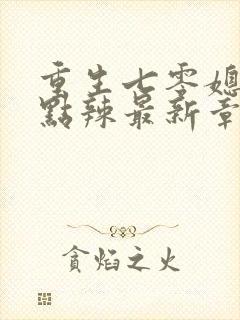 重生七零媳
點辣最新章
貪焰之火